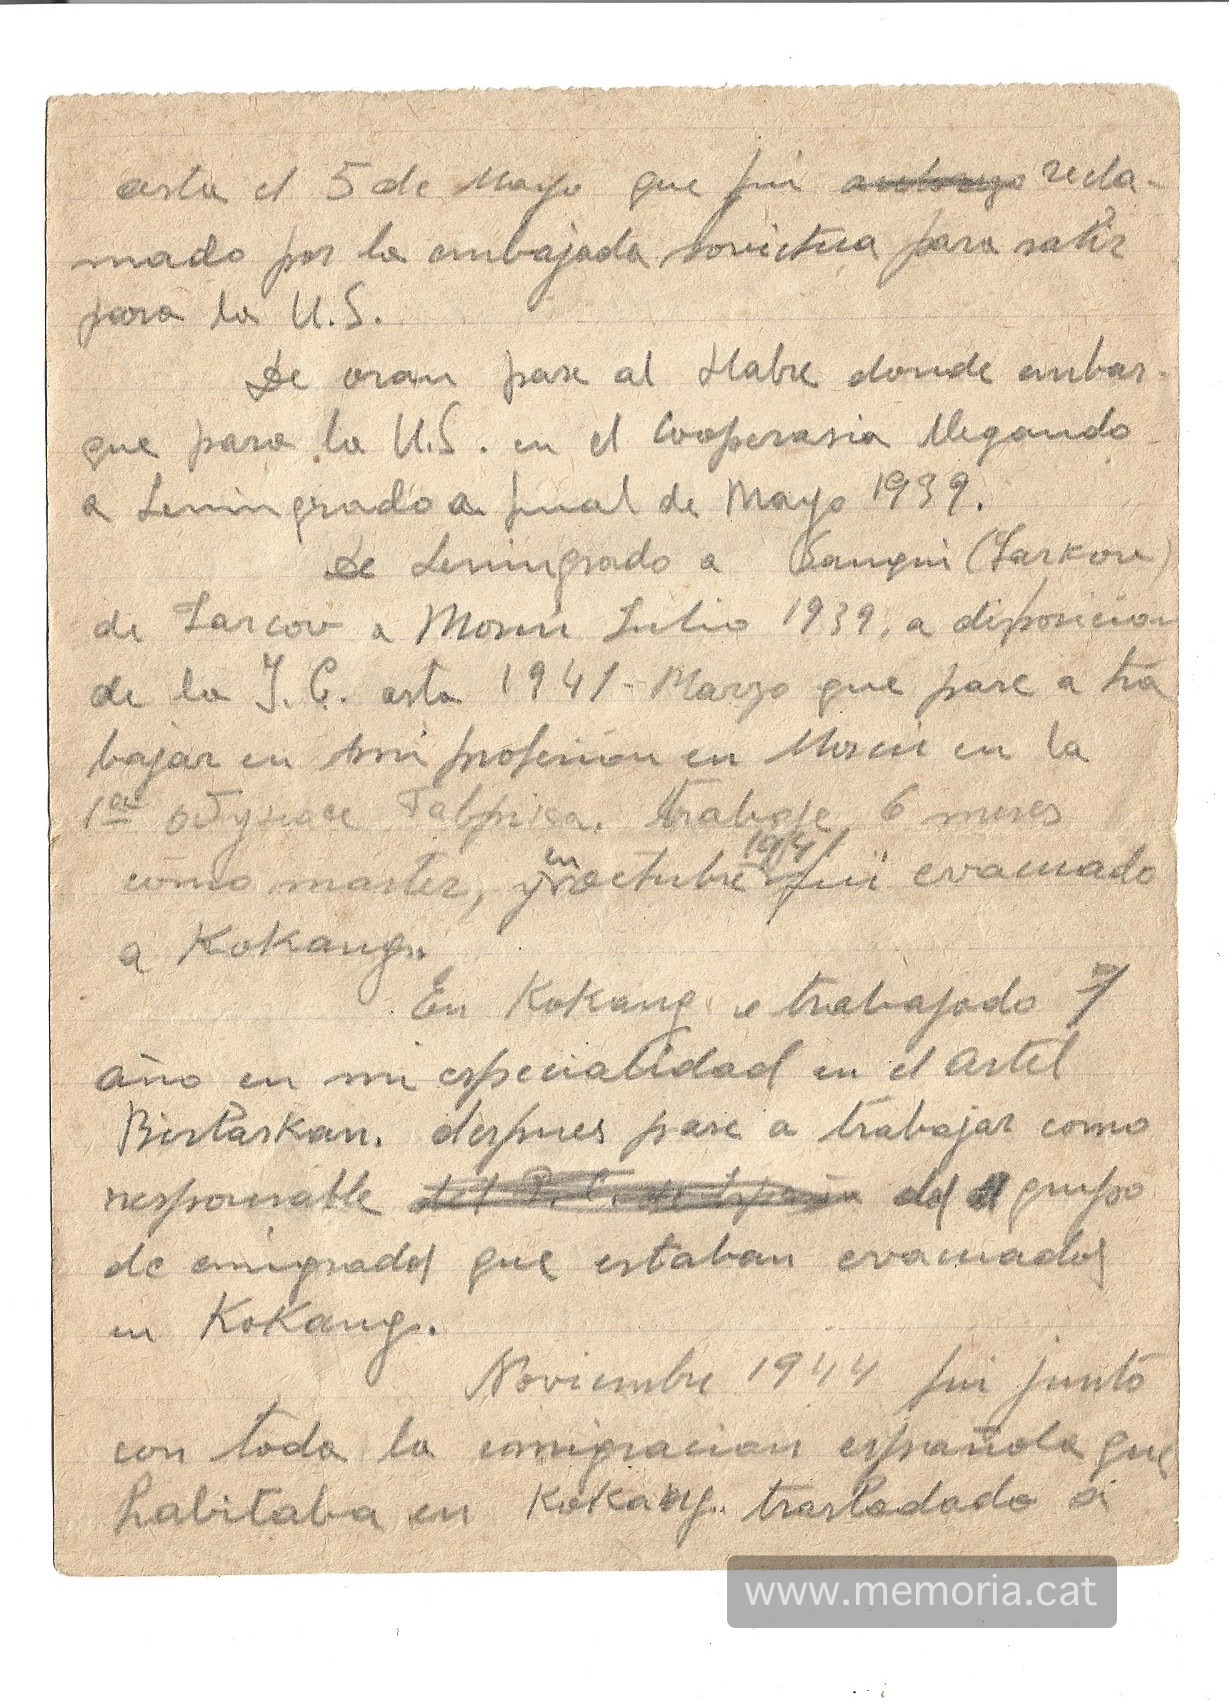 asta el 5 de Mayo que fui recla-
mado por la embajada sovietica para salir
para la U.S.
De oran pase al Habre donde embar-
que para la U.S. en el Cooperasia llegando
a Leningrado a final de Mayo 1939.
De Leningrado a Sanqui (Jarkov)
de Jarcov a Moscu Julio 1939, a disposicion
de la I.C. asta 1941 - Marzo que pase a tra
bajar en mi profesion en Moscu en la
1ª trabaje 6 meses
como master, y en octubre 1941 fui evacuado
a Kokang.
En Kokang e trabajado 1
año en mi especialidad en el artel
despues pase a trabajar como
responsable del P.C. de España del grupo
de emigrados que estaban evacuados
en Kokang.
Noviembre 1944 fui junto
con toda la emigracion española que
habitaba en Kokang. trasladado a
www.memoria.cat